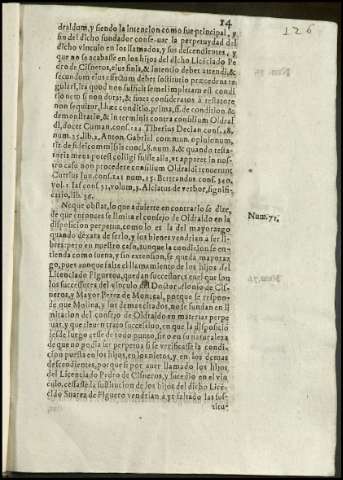 14
126
draldom, y siendo la intencion como fue principal, y
fin del dicho fundador conseruar la perpetuydad del
dicho vinculo en los llamados, y sus descendientes, y
que no se acabasse en los hijos del dicho Liceciado Pe
dro de Cisneros, eius finis, & intentio debet attendi, &
secundum eius effectum debet substitutio procedere in
gulari, ita quod non sufficit semel impletam esse condi
tionem si non durat, & finet consideratus à testatore
non sequitur, l. hæc conditio, prima, ff. de condition. &
demonstratio, & in terminis contra consilium Oldral
di, docet Cuman. cons. 122. Tiberius Decian. cons. 18.
num. 35. lib. 2. Anton. Gabriel commun. opinionum,
tit. de fideicommissis concl. 8. num. 8. & quando testa-
toris mens potest colligi fuisse alia, vt apparet in nos-
tro caso non procedere consilium Oldraldi tenuerunt
Curtius Iun. cons. 121. num. 15. Bertrandus cons. 350.
vol. 2. Iaf. cons. 51. volum. 3. Alciatus de verbor. signifi-
catio, lib. 36.
Neque obstat, lo que aduierte en contrario se dize,
de que entonces se limita el consejo de Oldraldo en la
disposicion perpetua, como lo es la del mayorazgo
quando dexata de serlo, y los bienes vendrian a ser li-
bres: pero en nuestro caso, aunque la condicion se en-
tienda como suena, y sin extension, se queda mayoraz-
go, pues aunque falte el llamamiento de los hijos del
Licenciado Figueroa, quedan successores en el que son
los successores del vinculo del Doctor Alonso de Cis-
neros, y Mayor Perez de Montreal, porque se respon-
de que Molina, y los demas citados, no se fundan en li
mitacion del consejo de Oldraldo en materias perpe
tuas, y que lleuen tracto successiuo, en que la disposicion
desde luego cesse de todo punto, sino en su naturaleza
de que no podia ser perpetua si se verificasse la condi-
cion puesta en los hijos, en los nietos, y en los demas
descendientes, porque si por auer llamado los hijos
del Licenciado Pedro de Cisneros, y sucedio en el vin-
culo, cessasse la substitucion de los hijos del dicho Licē-
ciado Suarez de Figueroa vendrian a yr faltado las sus-
titu-
Num. 71.